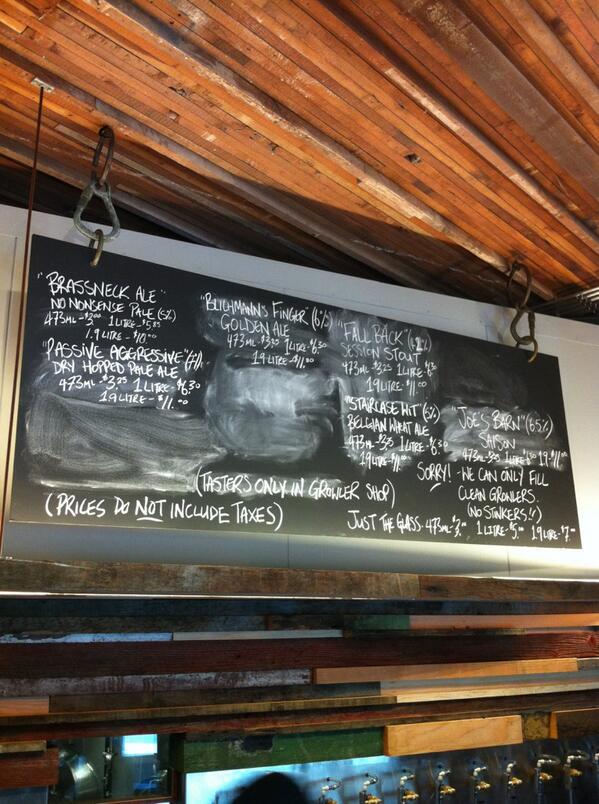 "BRASSNECK ALE"
NO NONSENSE PALE (5%)
473ML-$3.00 1 LITRE-$5.85
1.9 LITRE-$10.00
"PASSIVE AGGRESSIVE" (7%)
DRY HOPPED PALE ALE
473ML-$3.25 1 LITRE-$6.30
1.9 LITRE-$11.00
"BLICHMANN'S FINGER" (6%)
GOLDEN ALE
473ML-$3.30 1 LITRE-$6.30
1.9 LITRE-$11.00
"FALL BACK"
SESSION STOUT
473ML-$3.25 1 LITRE $6.30
1.9 LITRE-$11.00
"STAIRCASE WIT" (5%)
BELGIAN WHEAT ALE
473ML-$3.25 1 LITRE-$6.30
1.9 LITRE-$11.00
"JOE'S BARN" (6.5%)
SAISON
473ML-$3.25 1 LITRE-$6.30 1.9-$11.00
SORRY! - WE CAN ONLY FILL
CLEAN GROWLERS.
(NO STINKERS!!)
(TASTERS ONLY IN GROWLER SHOP)
(PRICES DO NOT INCLUDE TAXES)
JUST THE GLASS: 473ML-$3.00 1 LITRE-$5.00 1.9 LITRE-$7.00